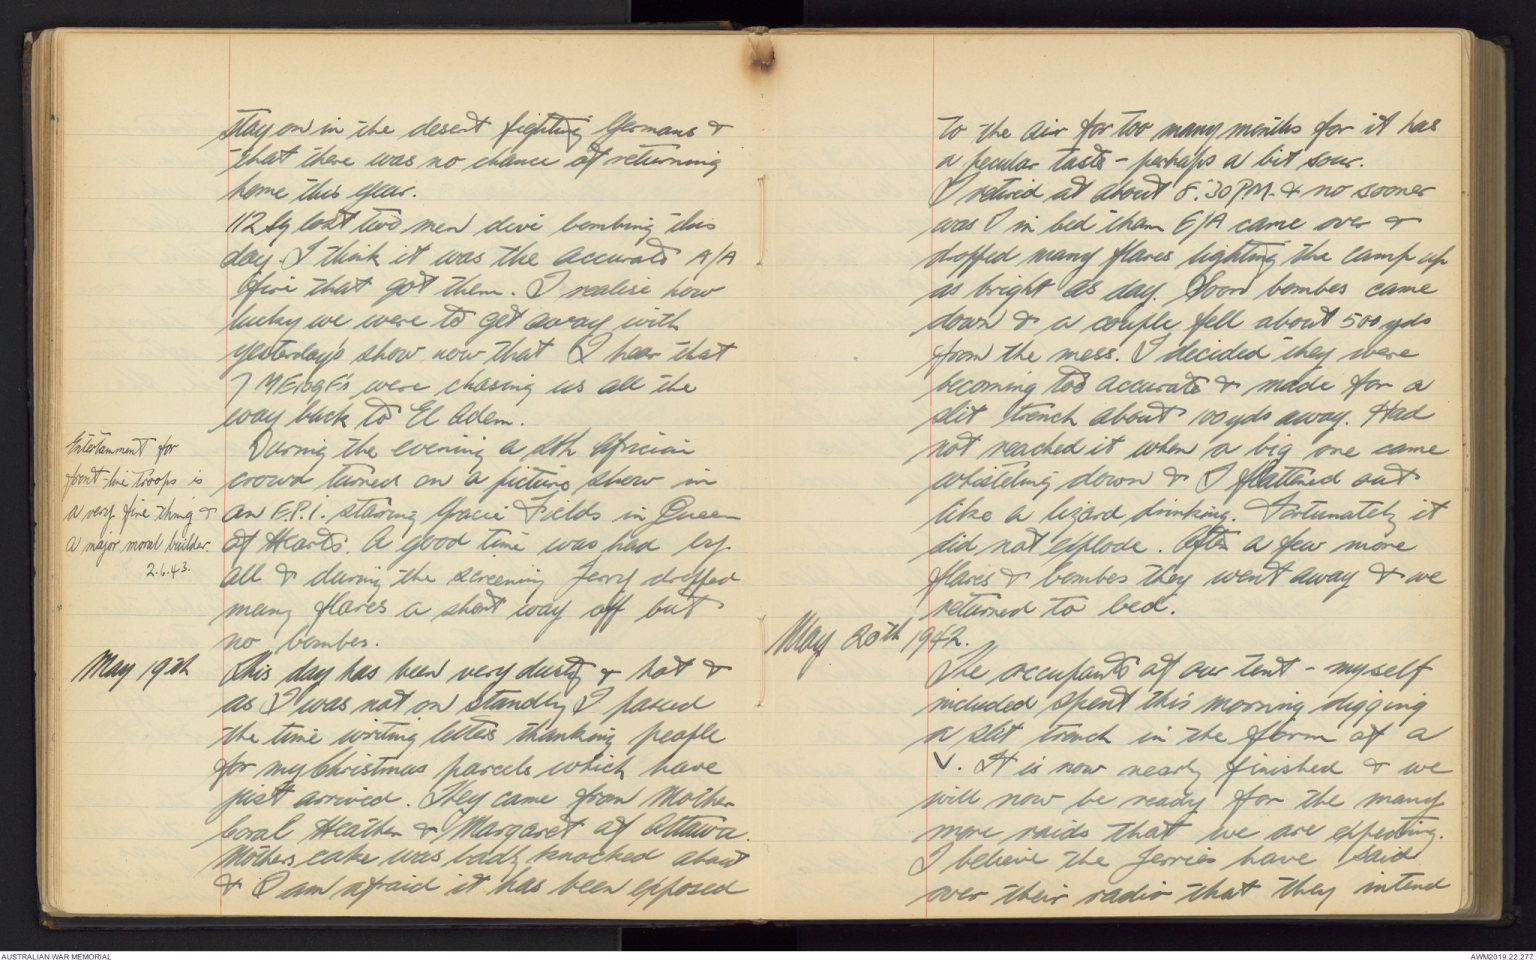 stay on in the desert fighting Germans &
that there was no chance of returning
home this year.
112 Sq lost two men dive bombing this
day. I think it was the accurate A/A
fire that got them. I realise how
lucky we were to get away with
yesterday's show now that I hear that
7 ME109F's were chasing us all the
way back to El Adem.
During the evening a Sth African
crowd turned on a picture show in
an E.P.I. staring Gracie Fields in Queen
of Hearts. A good time was had by
all & during the screening Jerry dropped
many flares a short way off but
no bombes.
Entertainment for
front-line troops is
a very fine thing &
a major moral builder.
2.6.43.
May 19th
This day has been very dusty & hot &
as I was not on standby I passed
the time writing letters thanking people
for my Christmas parcels which have
just arrived. They came from Mother
Coral Heather & Margaret of Ottawa.
Mothers cake was badly knocked about
& I am afraid it has been exposed
to the air for too many months for it has
a peculiar taste - perhaps a bit sour.
I retired at about 8.30 P.M. & no sooner
was I in bed than E/A came over &
dropped many flares lighting the camp up
as bright as day. Soon bombes came
down & a couple fell about 500 yds
from the mess. I decided they were
becoming too accurate & made for a
slit trench about 100 yds away. Had
not reached it when a big one came
whisteling down & I flattened out
like a lizard drinking. Fortunately it
did not explode. After a few more
flares & bombes they went away & we
returned to bed.
May 20th 1942.
The occupants of our tent - myself
included spent this morning digging
a slit trench in the form of a
V. It is now nearly finished & we
will now be ready for the many
more raids that we are expecting.
I believe the Jerries have said
over their radio that they intend
AUSTRALIAN WAR MEMORIAL
AWM2019.22.277